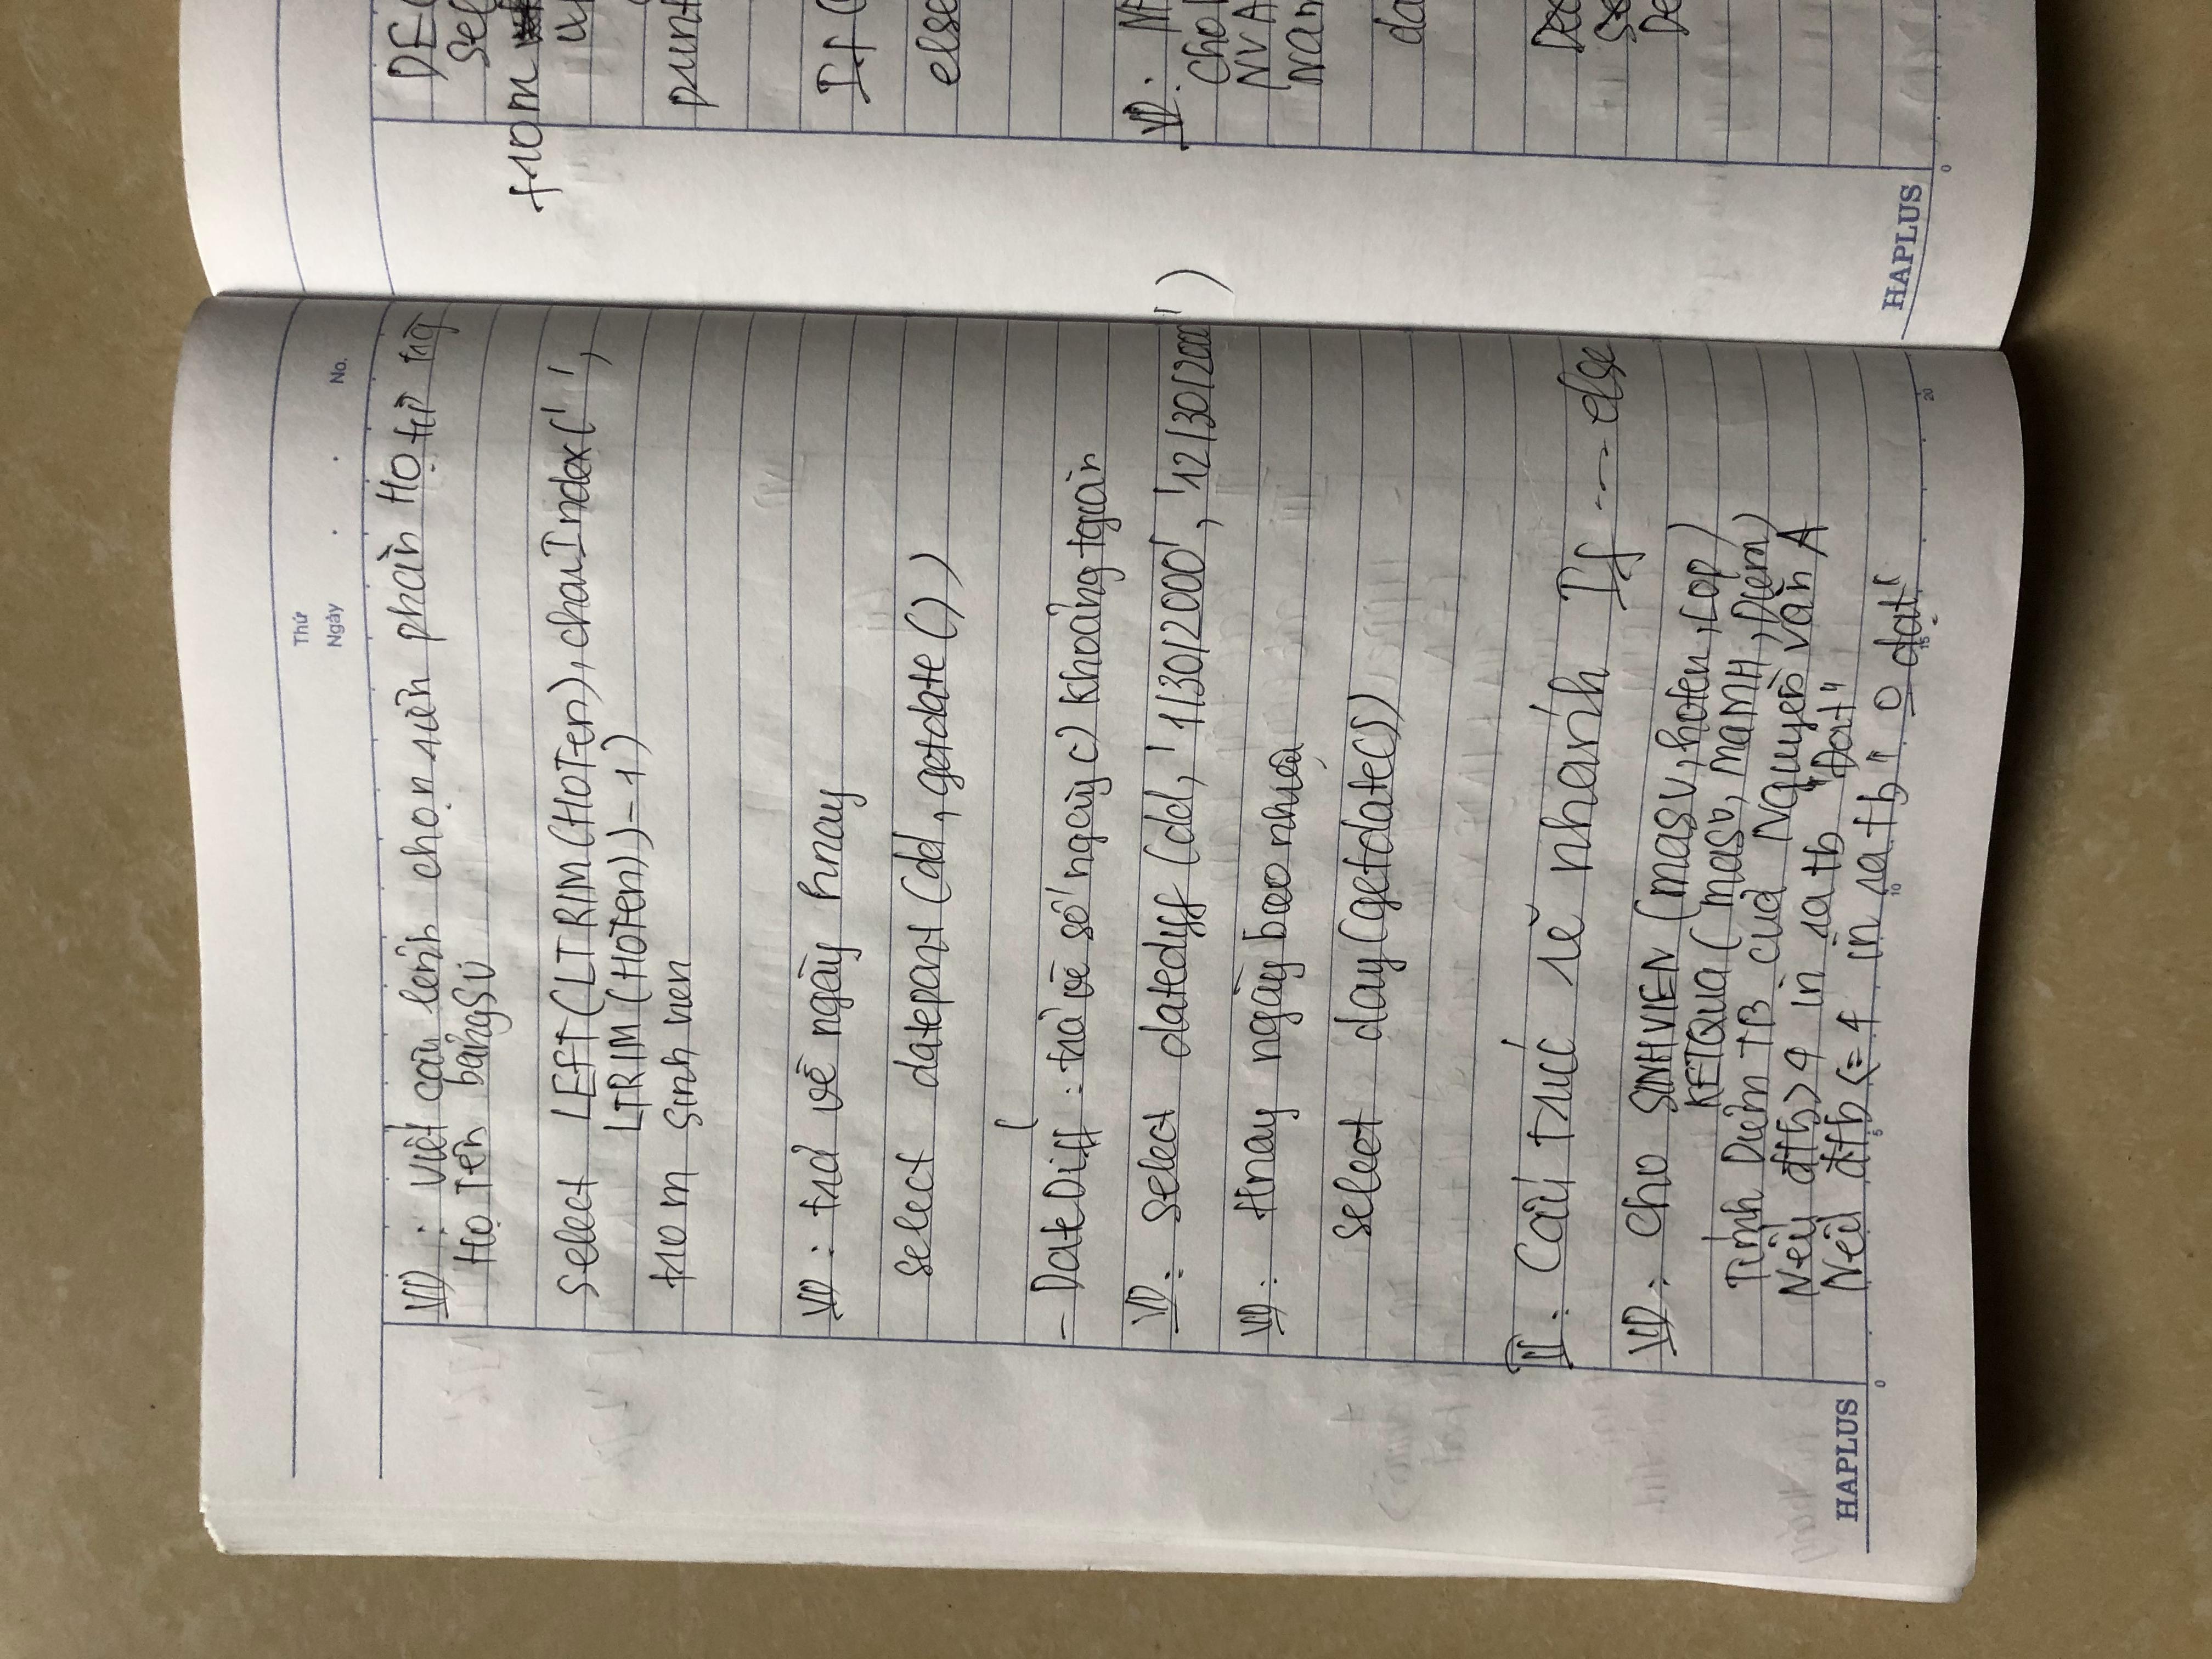 Thứ
Ngày
No.
VD : Viết câu lệnh chọn riên phần Họ từ trg
Họ Tên bảng SV
select LEFT(LTRIM(HOTen), charIndex(' ',
LTRIM(HOTen))-1)
from sinh vien
VD : trả về ngày hnay
select datepart (dd, getdate())
(
- DateDiff : trả về số ngày c) khoảng tgian
VD: select datediff (dd, '1/30/2000', '12/30/2000')
VD: Hnay ngày bao nhiêu
select day(getdate())
II. Cấu trúc rẽ nhánh If --- else
VD: Cho SINHVIEN (masv, hoten, Lop)
KETQUA ( masv, MAMH, Diem)
Tính Điểm TB của Nguyễn Văn A
Nếu đtb > 4 in ra tb "Đạt"
Nếu đtb <= 4 in ra tb " 0 đạt"
HAPLUS
0 5 10 15 20
DE
sel
from
print
If (
else
VD:
Cho
NVA
Nam
da
De
HAPLUS
0